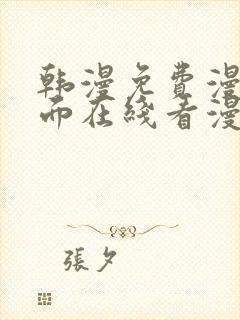 韩漫免费漫
而在线看漫
張夕